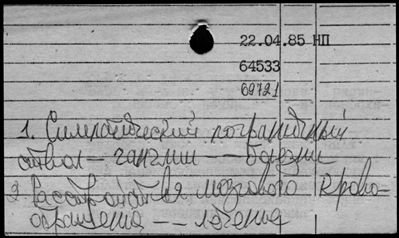 22.04.85 НП
64533
69721
1. Симпатический пограничный
ствол — ганглии — болезни
2. Расстройства мозгового крово-
обращения — лечение